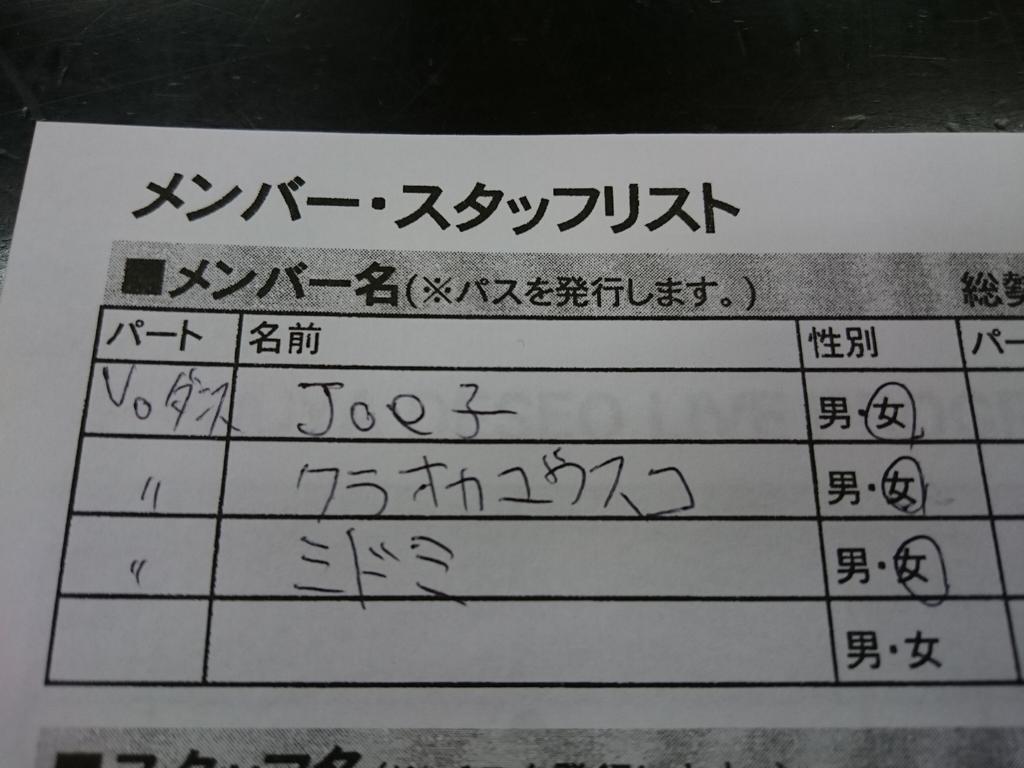 メンバー・スタッフリスト
■メンバー名(※パスを発行します。)
パート 名前 性別
Voダンス Joe子 男・女
〃 クラオカユウスコ 男・女
〃 ミドミ 男・女
男・女